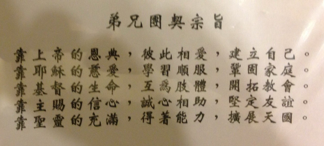 弟兄團契宗旨
靠上帝的恩典，彼此相愛，建立自己。
靠耶穌的慈愛，學習順服，鞏固家庭。
靠基督的生命，互為肢體，開拓教會。
靠主賜的信心，誠心相助，堅定友誼。
靠聖靈的充滿，得著能力，擴展天國。